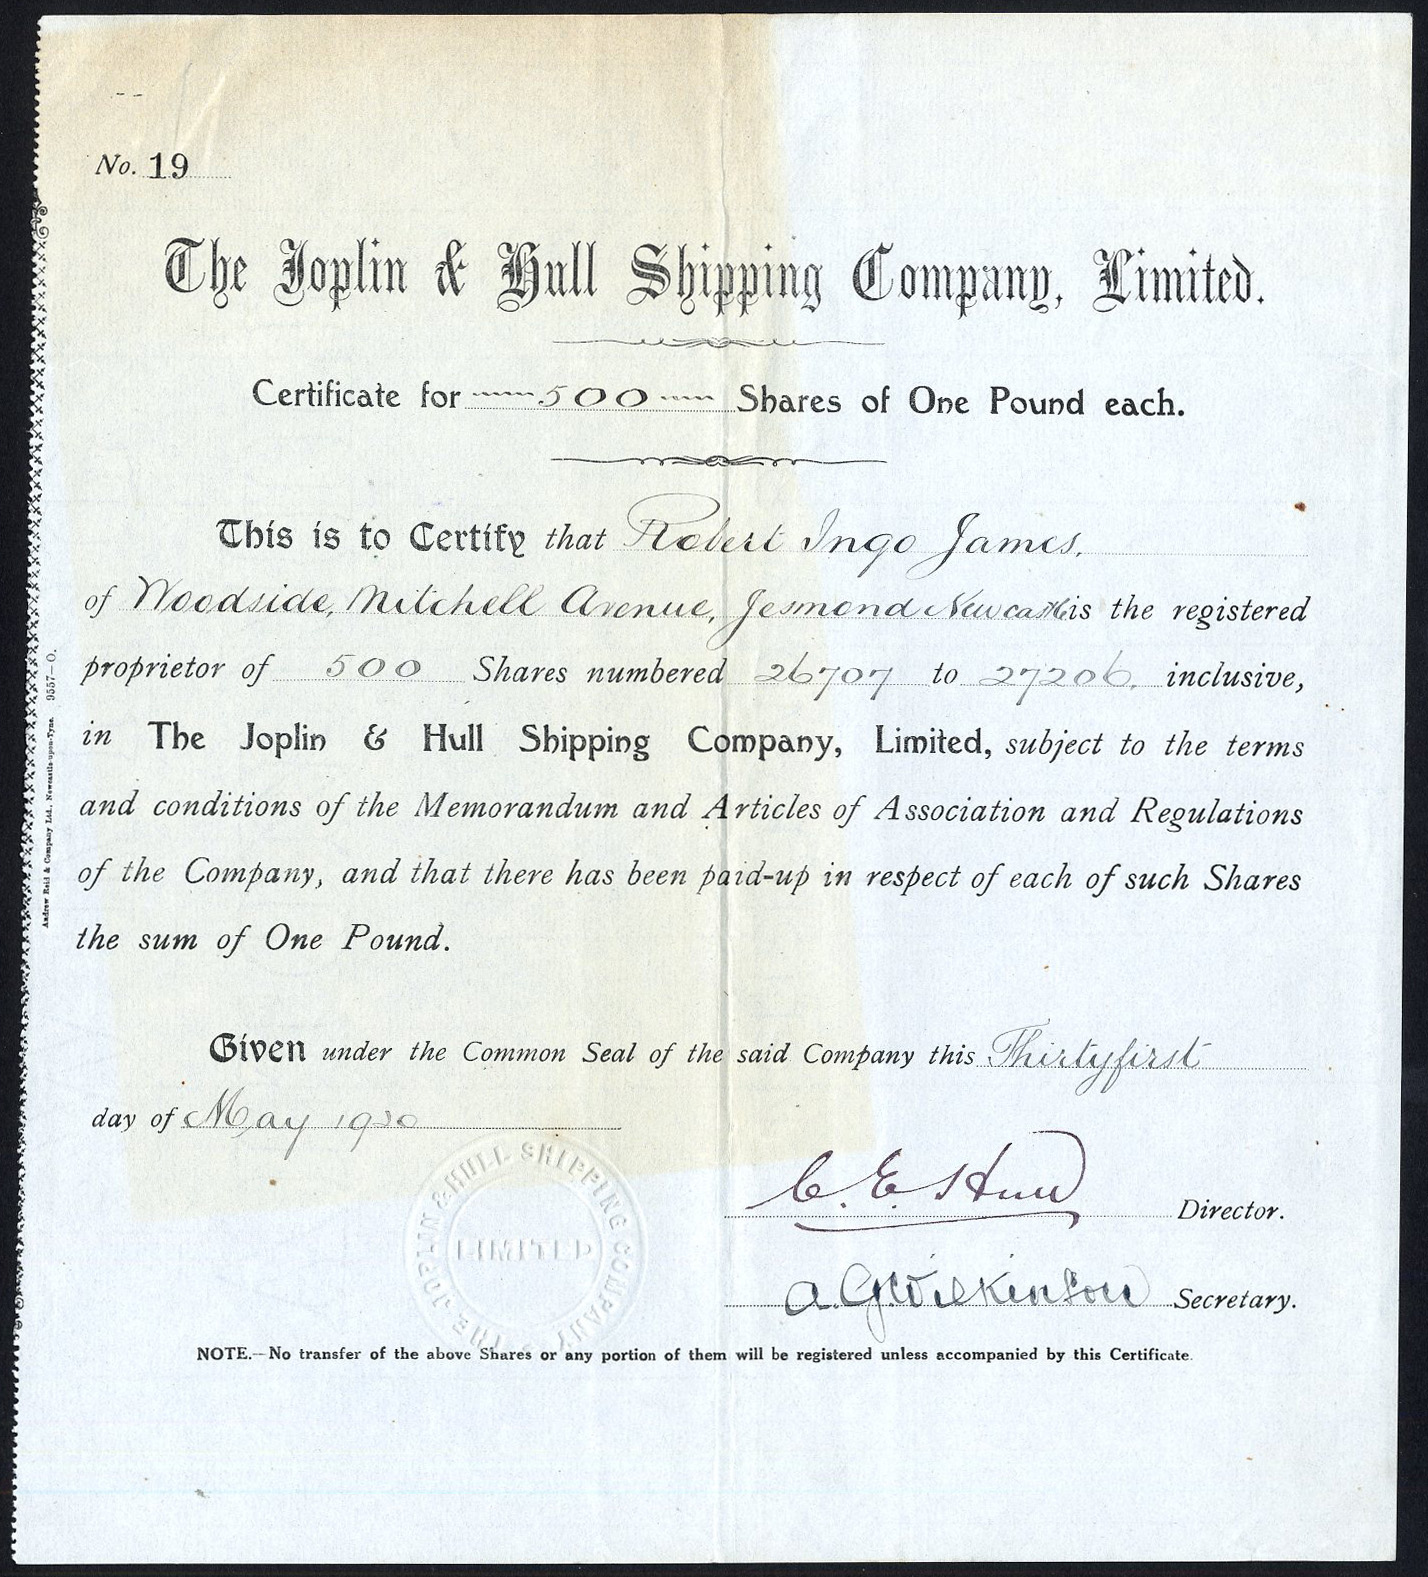 No. 19
The Joplin & Hull Shipping Company, Limited.
Certificate for 500 Shares of One Pound each.
This is to Certify that Robert Ingo James.
of Woodside, Mitchell Avenue, Jesmond Newcastle is the registered
proprietor of 500 Shares numbered 26707 to 27206. inclusive,
in The Joplin & Hull Shipping Company, Limited, subject to the terms
and conditions of the Memorandum and Articles of Association and Regulations
of the Company, and that there has been paid-up in respect of each of such Shares
the sum of One Pound.
Given under the Common Seal of the said Company this Thirtyfirst
day of May 1920
C. E. Hull Director.
A. G. Wilkinson Secretary.
THE JOPLIN & HULL SHIPPING COMPANY
LIMITED
NOTE.—No transfer of the above Shares or any portion of them will be registered unless accompanied by this Certificate.
Andrew Reid & Company Ltd., Newcastle-upon-Tyne. 9557—O.